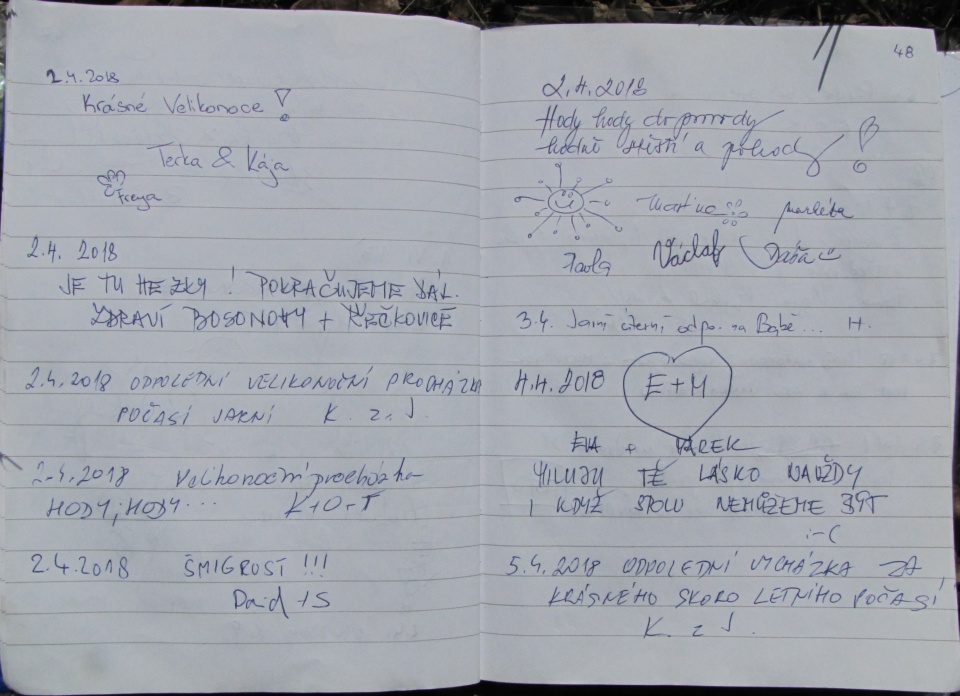 2.4.2018
Krásné Velikonoce!
Terka & Kája
Freya
2.4. 2018
JE TU HEZKY! POKRAČUJEME DÁL.
ZDRAVÍ BOSONOHY + ŘEČKOVICE
2.4.2018 ODPOLEDNÍ VELIKONOČNÍ PROCHÁZKA
POČASÍ JARNÍ K. z J.
2.4.2018 Velikonoční procházka
HODY, HODY... K+O+T
2.4.2018 ŠMIGROST!!!
David +S
48
2.4.2018
Hody hody do provody
hodně štěstí a pohody!
Martina Markéta
Pavla Václav Dáša
3.4. Jarní úterní odpo. na Babě... H.
4.4.2018 E+M
EVA + MAREK
MILUJU TĚ LÁSKO NAVŽDY
I KDYŽ SPOLU NEMŮŽEME BÝT
:-(
5.4.2018 ODPOLEDNÍ VYCHÁZKA ZA
KRÁSNÉHO SKORO LETNÍHO POČASÍ
K. z J.